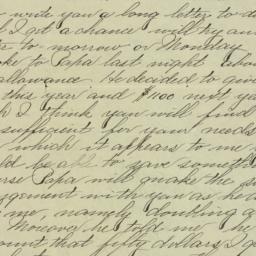 write you a long letter to d
I got a chance will try an
to morrow or Monday
oke to Papa last night abou
allowance. He decided to give
this year and $1100 next ye
h I think you will find
sufficient for your needs
which it appears to me y
ld be able to save someth
rse Papa will make the s
gement with you as he d
me, namely doubling a
Moreover he told me he
ount that fifty dollars I g